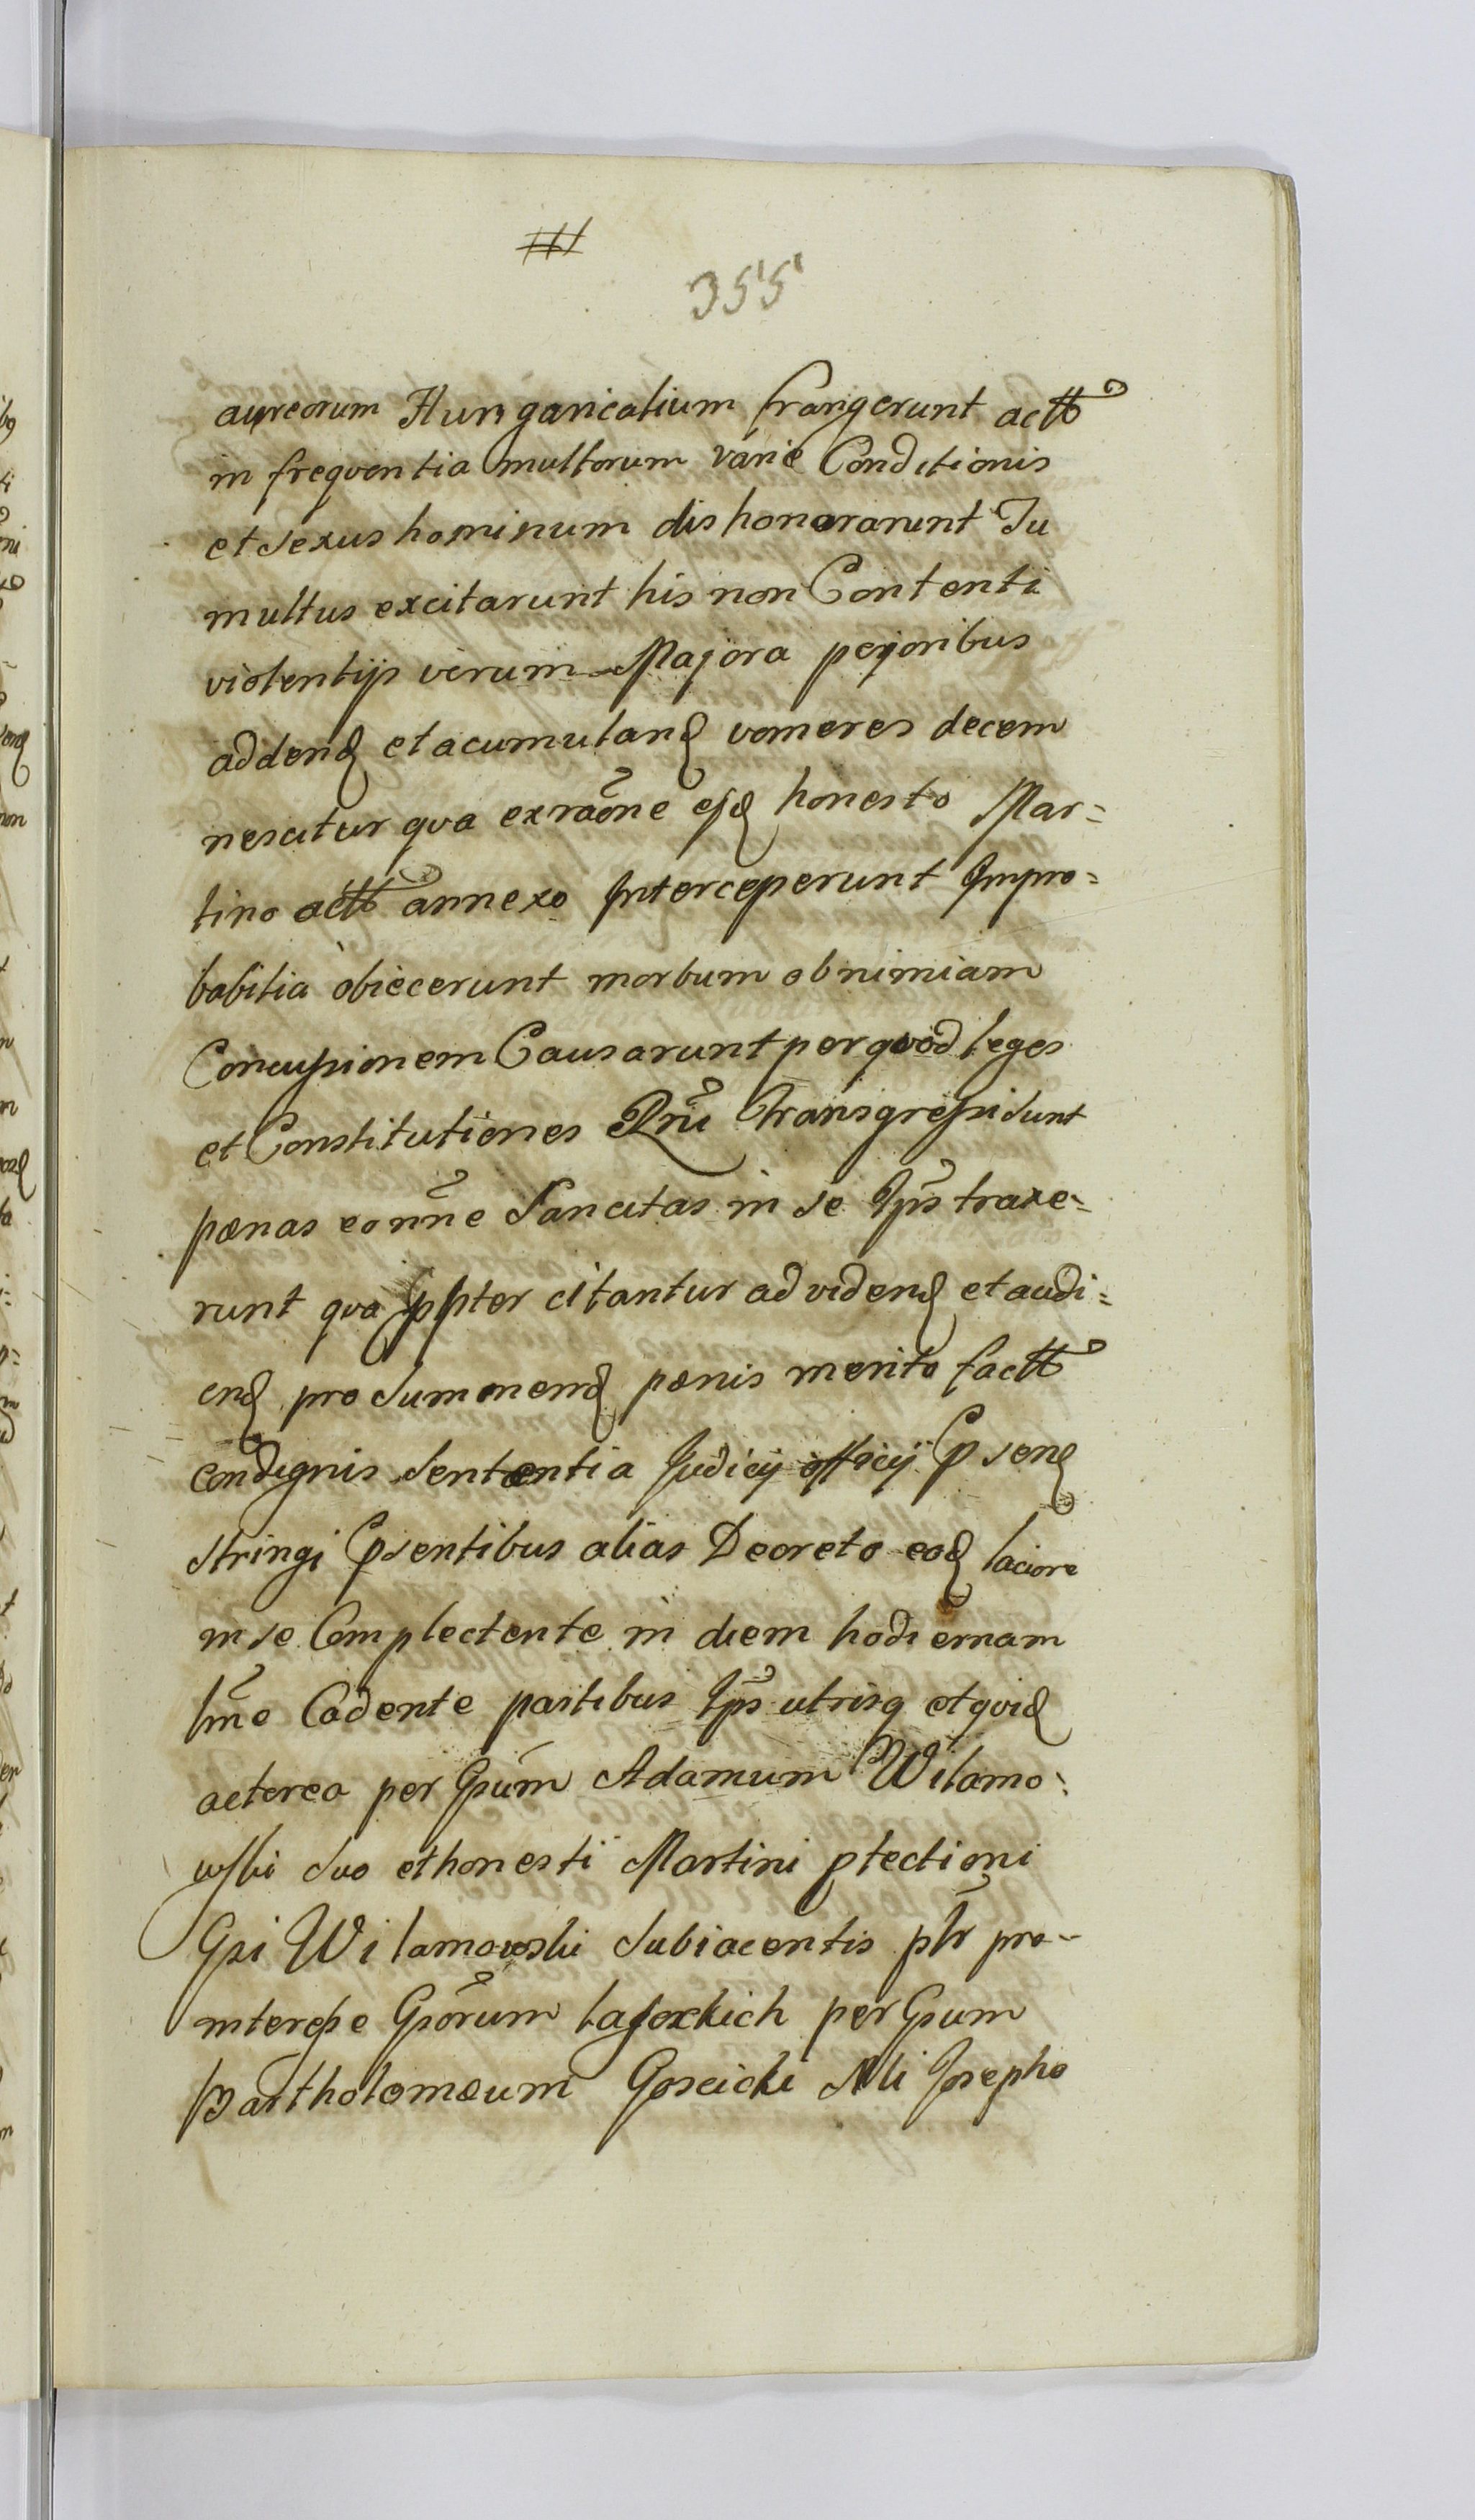 355
aureorum Hungaricalium frangerunt actt
in frequentia multorum varie Conditionis
et sexus hominum dishonorarunt Tu
multus excitarunt his non Contenti
violentijs verum Majora pejoribus
addend et acumuland vomeres decem
nescitur qva exraõne ejd honesto Mar=
tino actt annexo Interceperunt Impro=
babilia obiecerunt morbum ob nimiam
Concussionem Causarunt per qvod leges
et Constitutiones Rñi transgressi sunt
pænas eo nñe Sancitas in se Ips traxe=
runt qva ppter citantur ad vidend et audi=
end pro summenend pænis merito factt
condignis sentæntia Judicij officij Psend
stringi Psentibus alias Decreto eod laciore
in se Complectente in diem hodiernam
lme Cadente partibus Ips utrisq et qvid
acterea per Gsum Adamum Wilamo=
wski suo et honesti Martini ptectioni
Gsi Wilamowski subiacentis pltr pro=
intercsse Gsorum per Gsum
Bartholomæum Goscicki Mli Josepho